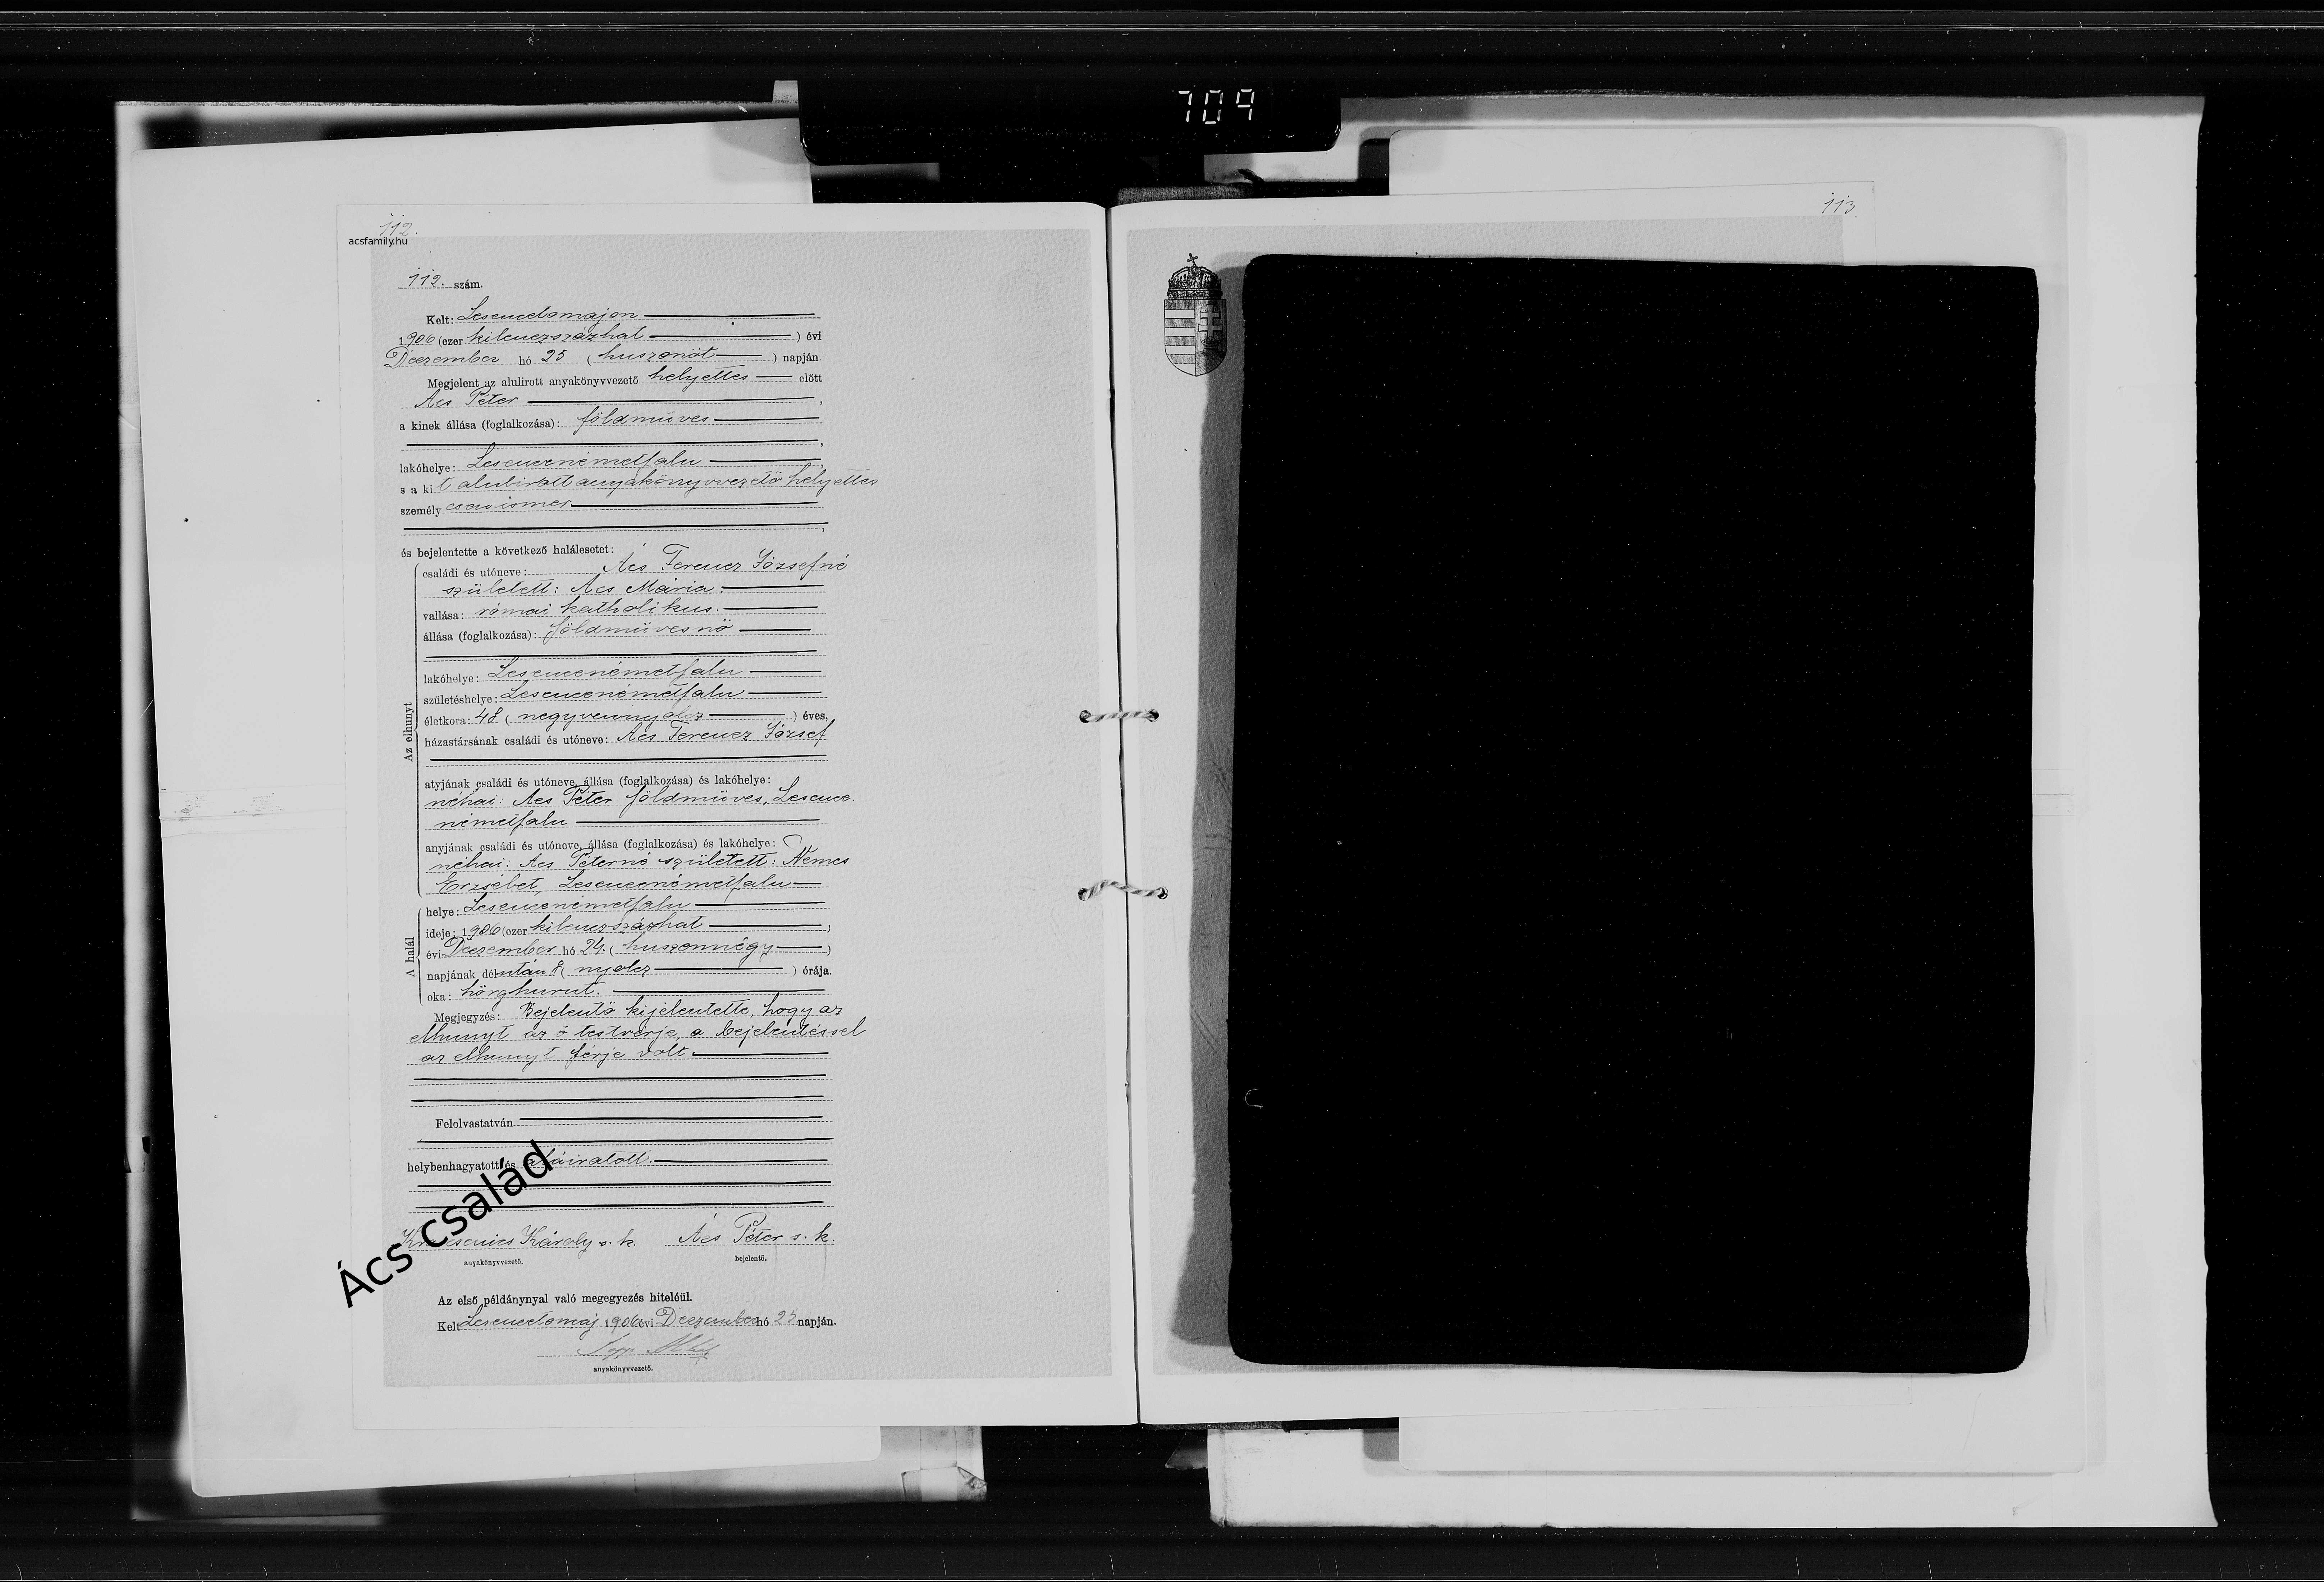 709
112.
113.
acsfamily.hu
112. szám.
Kelt: Lesencetomajon
1906 (ezer kilenczszázhat) évi
Deczember hó 25 (huszonöt) napján.
Megjelent az alulirott anyakönyvvezető helyettes előtt
Ács Péter,
a kinek állása (foglalkozása): földmüves
lakóhelye: Lesencenémetfalu,
s a kit alulirott anyakönyvvezető helyettes
személyesen ismer,
és bejelentette a következő halálesetet:
Az elhunyt
családi és utóneve: Ács Ferencz Józsefné
született: Ács Mária.
vallása: római katholikus.
állása (foglalkozása): földmüvesnő
lakóhelye: Lesencenémetfalu
születéshelye: Lesencenémetfalu
életkora: 48 (negyvennyolcz) éves,
házastársának családi és utóneve: Ács Ferencz József
atyjának családi és utóneve, állása (foglalkozása) és lakóhelye:
néhai: Ács Péter földmüves, Lesence-
németfalu
anyjának családi és utóneve, állása (foglalkozása) és lakóhelye:
néhai: Ács Péterné született: Nemes
Erzsébet, Lesencenémetfalu
A halál
helye: Lesencenémetfalu
ideje: 1906 (ezer kilenczszázhat;
évi Deczember hó 24. (huszonnégy)
napjának délután 8 (nyolcz) órája.
oka: hörghurut.
Megjegyzés: Bejelentő kijelentette, hogy az
elhunyt az ő testvérje, a bejelentéssel
az elhunyt férje volt
Felolvastatván
helybenhagyatott és aláiratott.
Károly s. k. Ács Péter s. k.
anyakönyvvezető. bejelentő.
Ács család
Az első példánynyal való megegyezés hiteléül.
Kelt Lesencetomaj 1906 évi Deczember hó 25 napján.
anyakönyvvezető.